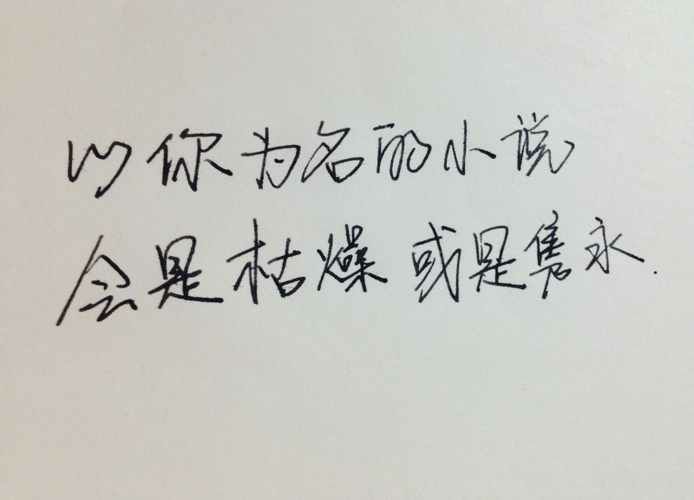 以你为名的小说
会是枯燥或是隽永.